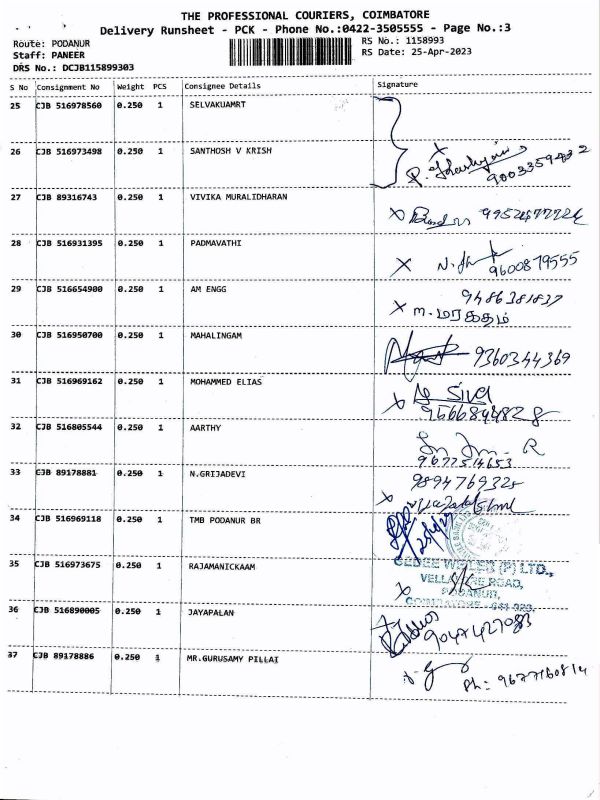 THE PROFESSIONAL COURIERS, COIMBATORE
Delivery Runsheet - PCK - Phone No.:0422-3505555 - Page No.:3
Route: PODANUR RS No.: 1158993
Staff: PANEER RS Date: 25-Apr-2023
DRS No.: DCJB115899303
S No Consignment No Weight PCS Consignee Details Signature
25 CJB 516978560 0.250 1 SELVAKUAMRT
26 CJB 516973498 0.250 1 SANTHOSH V KRISH
9003359432
27 CJB 89316743 0.250 1 VIVIKA MURALIDHARAN
28 CJB 516931395 0.250 1 PADMAVATHI
9600879555
29 CJB 516654900 0.250 1 AM ENGG 9486381837
m. மரகதம்
30 CJB 516950700 0.250 1 MAHALINGAM
9360344369
31 CJB 516969162 0.250 1 MOHAMMED ELIAS Siva
9566844828
32 CJB 516805544 0.250 1 AARTHY
9677514653
33 CJB 89178881 0.250 1 N.GRIJADEVI 9894769325
34 CJB 516969118 0.250 1 TMB PODANUR BR
35 CJB 516973675 0.250 1 RAJAMANICKAAM GEDEE WEILER (P) LTD.,
ROAD,
PODANUR,
COIMBATORE - 641 023.
36 CJB 516890005 0.250 1 JAYAPALAN
9047427083
37 CJB 89178886 0.250 1 MR.GURUSAMY PILLAI
Ph: 9677160814